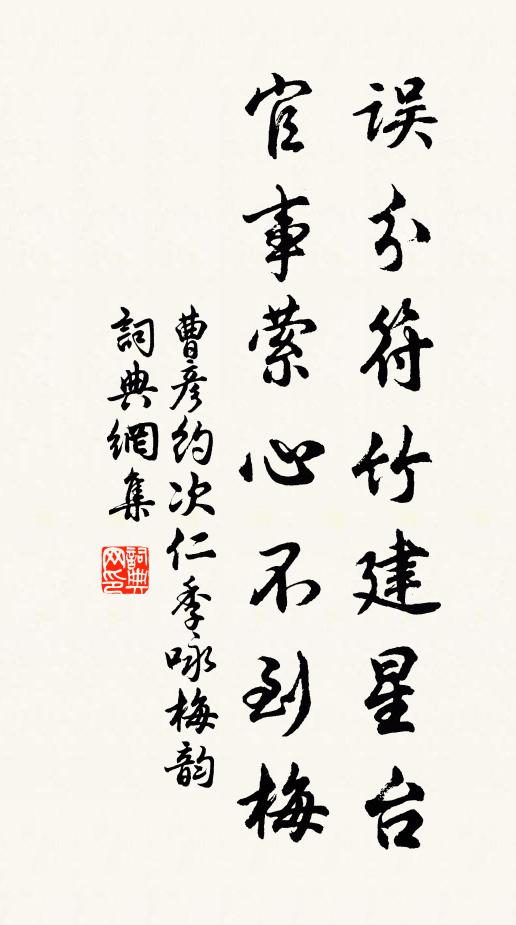 误分符竹建星台
官事萦心不到梅
曹彦约次仁季咏梅韵
詞典網集
詞典网印